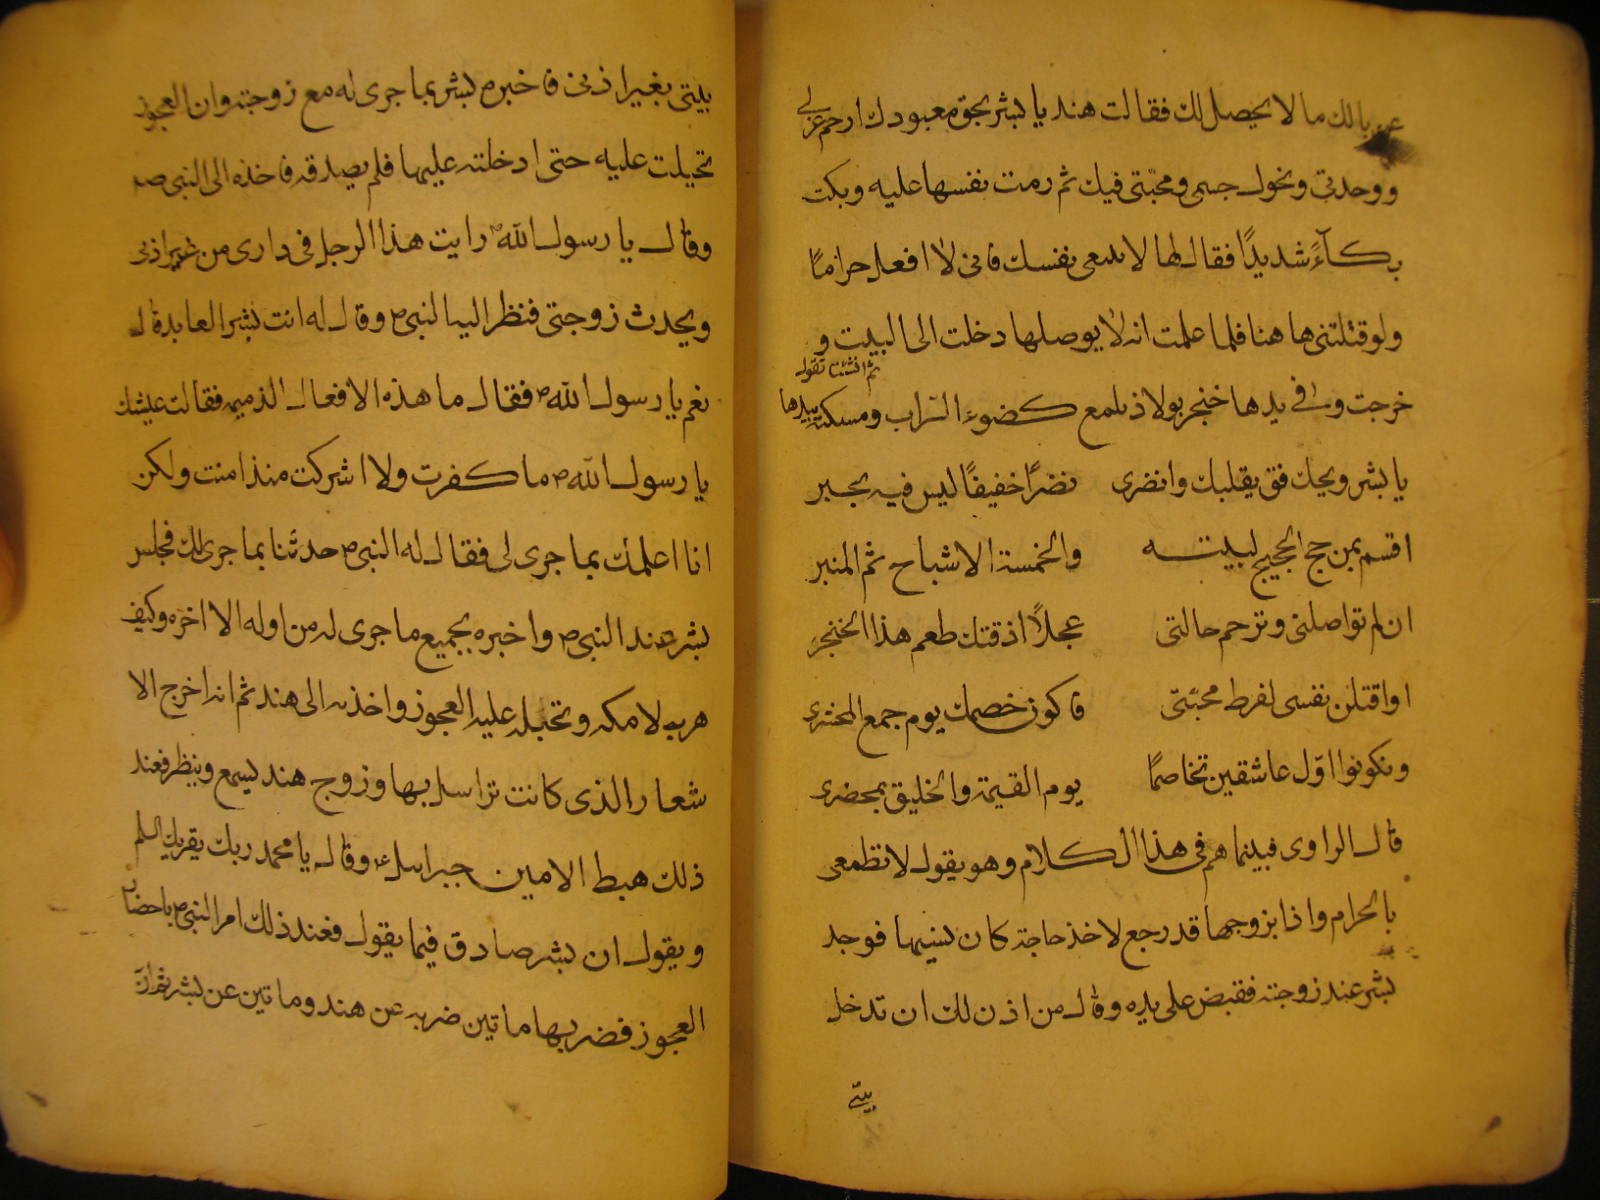 عن بالك ما لا يحصل لك فقالت هند يا بشر بحق معبودك ارحم غربتي
ووحدتي ونحول جسمي ومحبّتي فيك ثم رمت نفسها عليه وبكت
بكآءً شديدًا فقال لها لا تتعبى نفسك فانى لا افعل حرامًا
ولو قتلتنى ها هنا فلما علمت انه لا يوصلها دخلت الى البيت و
ثم انشئت تقول
خرجت وفى يدها خنجر بولاذ يلمع كضوء السراب ومسكته بيدها
يا بشر ويحك فق بقلبك وانضرى نضرًا خفيفًا ليس فيه بجبر
اقسم بمن حج الحجيج لبيته والخمسة الاشباح ثم المنبر
ان لم تواصلنى وترحم حالتى عجلاً اذقتك طعم هذا الخنجر
او اقتلن نفسى لفرط محبّتى فاكون خصمك يوم جمع المحشرى
ونكونوا اوّل عاشقين تخاصمًا يوم القيمة والخليق بمحضرى
قال الراوى فبينما هم فى هذا الكلام وهو يقول لا تطمعى
بالحرام واذا بزوجها قد رجع لاخذ حاجة كان نسيها فوجد
بشر عند زوجته فقبض على يده وقال من اذن لك ان تدخل
بيتى
بيتى بغير اذنى فاخبره بشر بما جرى له مع زوجته وان العجوز
تحيلت عليه حتى ادخلته عليها فلم يصدقه فاخذه الى النبى صم
وقال يا رسول الله ص رايت هذا الرجل فى دارى من غير اذنى
ويحدث زوجتى فنظر اليه النبى ص وقال له انت بشر العابد قال
نعم يا رسول الله ص فقال ما هذه الافعال الذميمه فقال
يا رسول الله ص ما كفرت ولا اشركت منذ امنت ولكن
انا اعلمك بما جرى لى فقال له النبى ص حدثنا بما جرى لك فجلس
بشر عند النبى ص واخبره بجميع ما جرى له من اوله الا اخره وكيف
هرب لامكه وتحيله عليه العجوز واخذته الى هند ثم انه اخرج الا
شعار الذى كانت تراسل بها وزوج هند يسمع وينظر فعند
ذلك هبط الامين جبرائيل ع وقال يا محمد ربك يقريك السلم
ويقول ان بشر صادق فيما يقول فعند ذلك امر النبى ص باحضار
العجوز فضربها ماتين ضربه عن هند وماتين عن بشر ثم ان